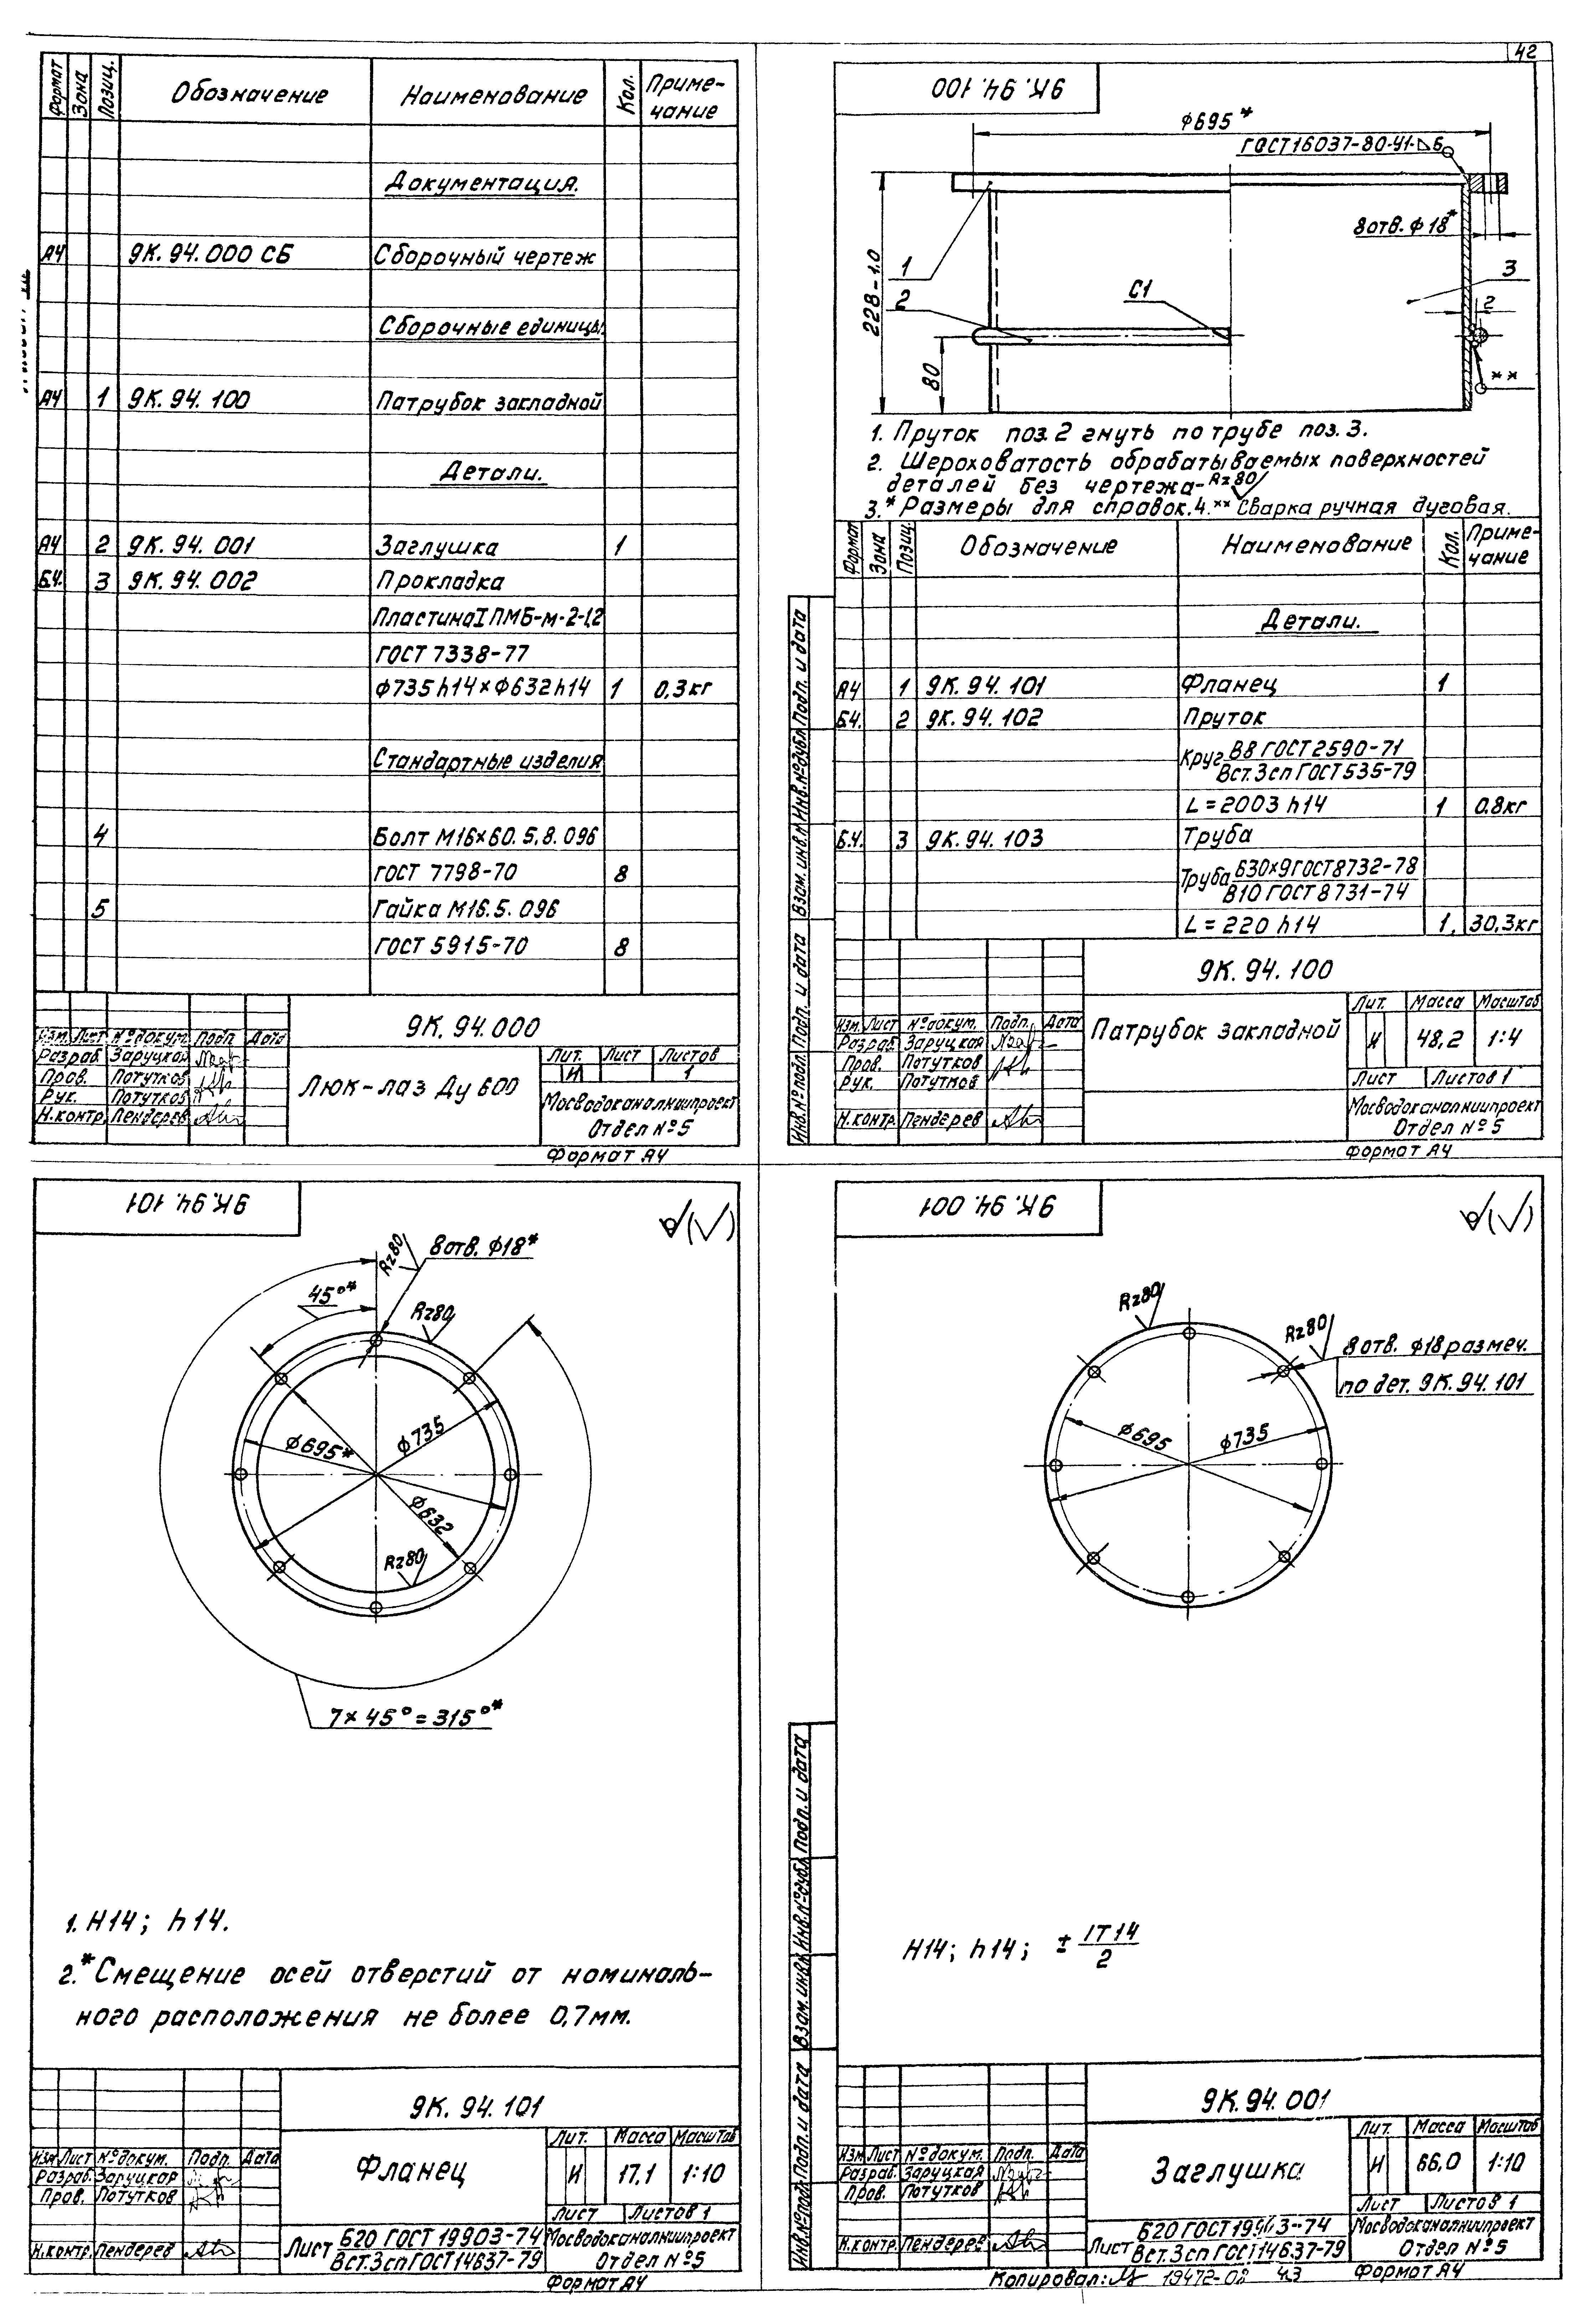 42
Формат
Зона
Позиц.
Обозначение
Наименование
Кол.
Приме-
чание
Документация.
А4 9К. 94. 000 СБ Сборочный чертеж
Сборочные единицы.
А4 1 9К. 94. 100 Патрубок закладной
Детали.
А4 2 9К. 94. 001 Заглушка 1
Б.4. 3 9К. 94. 002 Прокладка
Пластина I ПМБ-м-2-1,2
ГОСТ 7338-77
ф735 h14 × ф632 h14 1 0,3кг
Стандартные изделия
4 Болт М16×60.5,8.096
ГОСТ 7798-70 8
5 Гайка М16.5.096
ГОСТ 5915-70 8
9К. 94.000
Изм. Лист № докум. Подп. Дата
Разраб. Заруцкая
Пров. Потутков
Рук. Потутков
Н.контр. Пендерев
Люк-лаз Ду 600
Лит. Лист Листов
И 1
Мосводоканалниипроект
Отдел № 5
Формат А4
9К. 94. 100
ф695*
ГОСТ 16037-80-У1-⊿6
8отв. ф18*
228-1.0
80
1
2
С1
3
2
**
1. Пруток поз. 2 гнуть по трубе поз. 3.
2. Шероховатость обрабатываемых поверхностей
деталей без чертежа- Rz80
3.* Размеры для справок. 4.** Сварка ручная дуговая.
Формат
Зона
Позиц.
Обозначение
Наименование
Кол.
Приме-
чание
Детали.
А4 1 9К. 94. 101 Фланец 1
Б4. 2 9К. 94. 102 Пруток
Круг В8 ГОСТ 2590-71
Вст. 3сп ГОСТ 535-79
L = 2003 h14 1 0.8кг
Б.4. 3 9К. 94. 103 Труба
Труба 630×9 ГОСТ 8732-78
В10 ГОСТ 8731-74
L = 220 h14 1. 30,3кг
Подп. и дата
Инв.№дубл.
Взам. инв.№
Подп. и дата
Инв.№ подл.
9К. 94. 100
Изм. Лист № докум. Подп. Дата
Разраб. Заруцкая
Пров. Потутков
Рук. Потутков
Н.контр. Пендерев
Патрубок закладной
Лит. Масса Масштаб
И 48,2 1:4
Лист Листов 1
Мосводоканалниипроект
Отдел № 5
Формат А4
9К. 94. 101
√(√)
Rz80
8отв. ф18*
45°*
Rz80
ф695*
ф735
ф632
Rz80
7× 45° = 315°*
1. Н14; h14.
2.* Смещение осей отверстий от номиналь-
ного расположения не более 0,7мм.
9К. 94. 101
Изм Лист № докум. Подп. Дата
Разраб. Заруцкая
Пров. Потутков
Н.контр. Пендерев
Фланец
Лит. Масса Масштаб
И 17,1 1:10
Лист Листов 1
Лист Б20 ГОСТ 19903-74
Вст.3 сп ГОСТ 14637-79
Мосводоканалниипроект
Отдел № 5
Формат А4
9К. 94. 001
√(√)
Rz80
Rz80
8 отв. ф18 размеч.
по дет. 9К. 94. 101
ф695
ф735
Н14; h14; ± IT14
2
Подп. и дата
Инв.№дубл.
Взам. инв.№
Подп. и дата
Инв.№ подл.
9К. 94. 001
Изм Лист № докум. Подп. Дата
Разраб. Заруцкая
Пров. Потутков
Н.контр. Пендерев
Заглушка
Лит. Масса Масштаб
И 66,0 1:10
Лист Листов 1
Лист Б20 ГОСТ 19903-74
Вст.3 сп ГОСТ 14637-79
Мосводоканалниипроект
Отдел № 5
Копировал: 19472-02 43 Формат А4